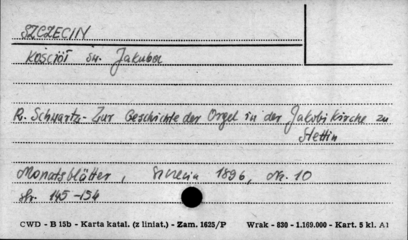 SZCZECIN
Kościół św. Jakuba
R. Schwartz - Zur Geschichte der Orgel in der Jakobikirche zu
Stettin
Monatsblätter, 1896, Nr. 10
str. 145-154
CWD - B 15b - Karta katal. (z liniat.) - Zam. 1625/P Wrak - 830 - 1.169.000 - Kart. 5 kl. A1